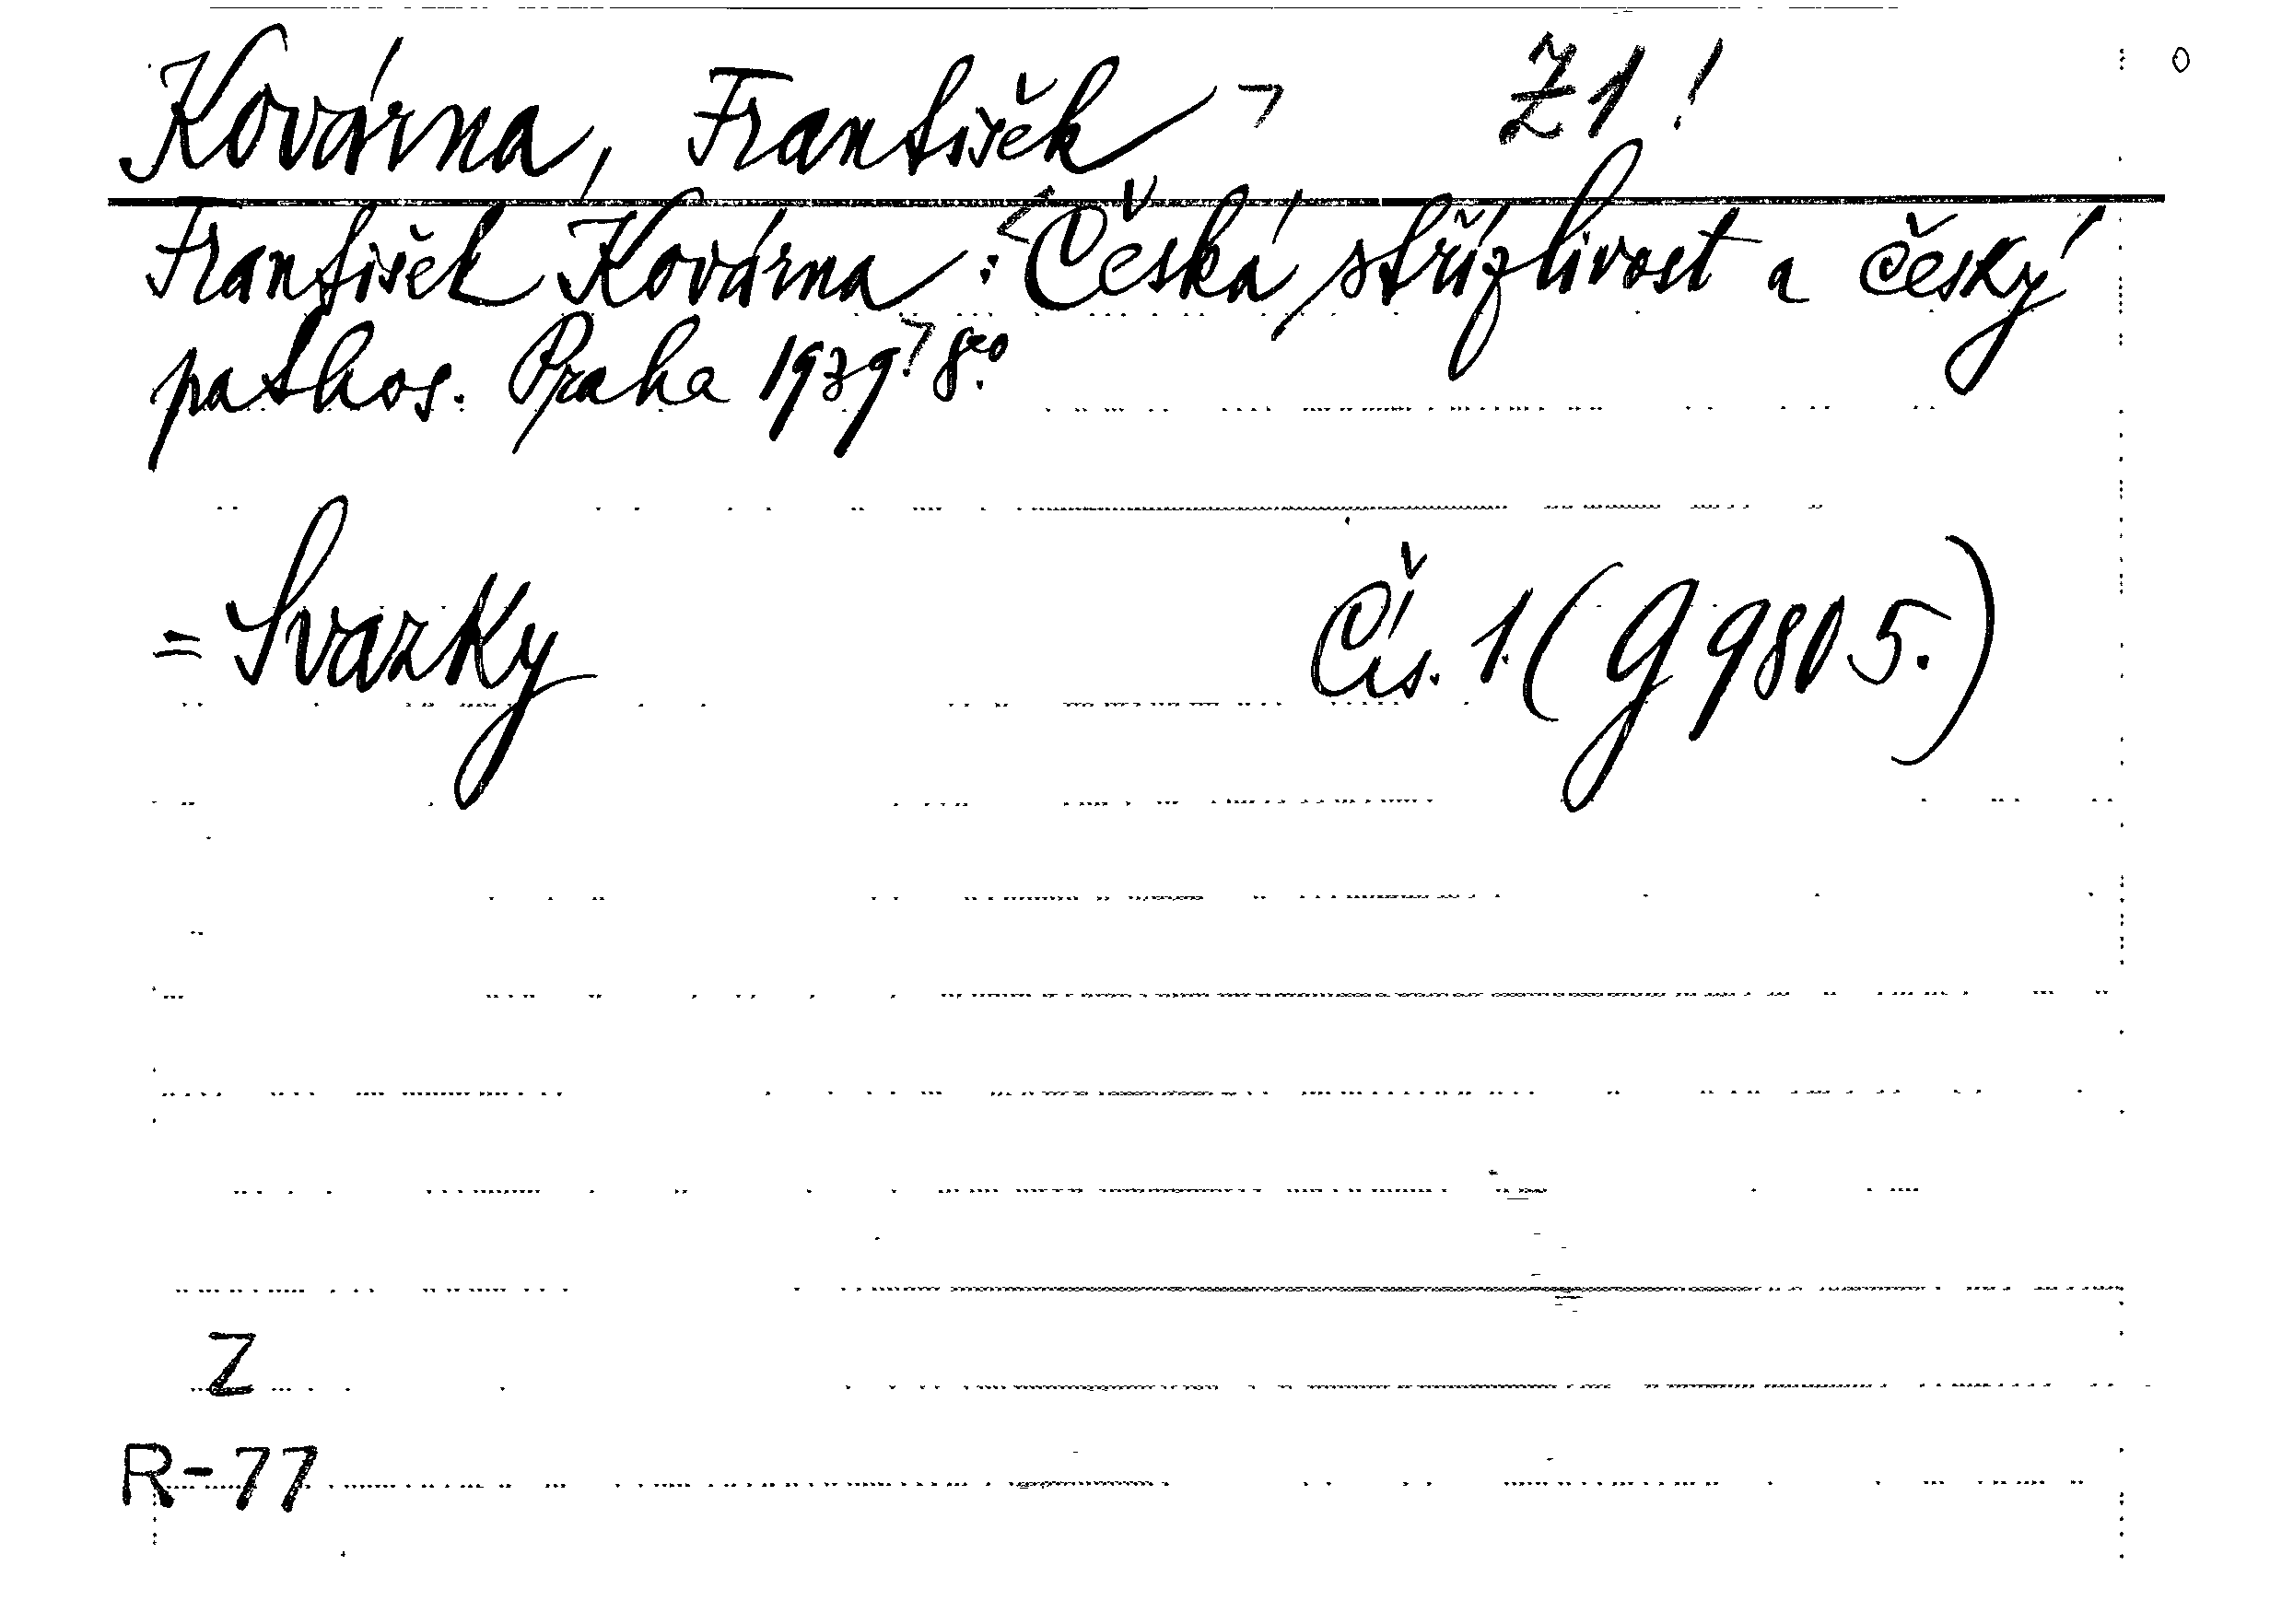 Kovárna, František ㄱ Z1!
František Kovárna: <Česká střízlivost a český
pathos. Praha 1939.ㄱ 8°.
= Svazky Čís. 1. (G 9805.)
Z
R-77